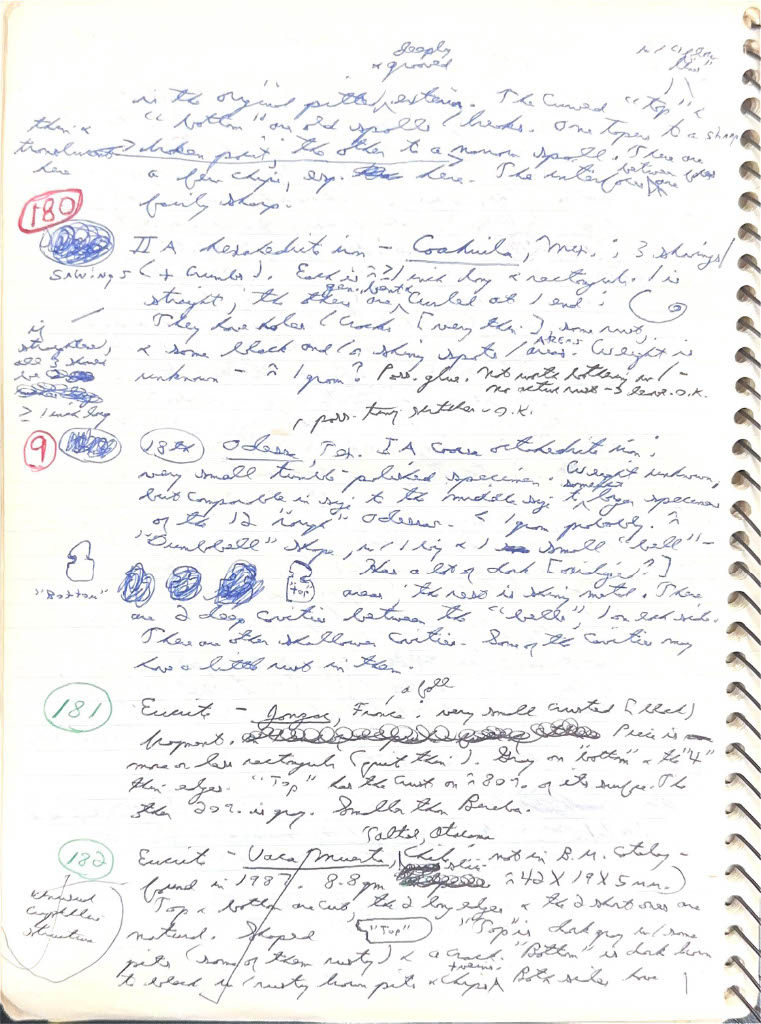 deeply
& grooved
in the original pitted exterior. The curved "top" &
"bottom" are old spalls/breaks. One tapers to a sharp
thin &
translucent
here
broken point, the other to a narrow spall. There are
a few chips, esp. here. The interfaces are
between faces
fairly sharp.
180
II A hexahedrite iron – Coahuila, Mex.: 3 shavings/
SAWINGS
(+ crumbs). Each is ≈ 1 inch long & rectangular. 1 is
straight; the others are gen. bent & curled at 1 end:
They have holes/cracks [very thin], some rust,
& some black and/or shiny spots/areas. Weight is
AREAS
unknown – ≈ 1 gram? Poss. glue. Not worth bothering w/ –
no active rust → leave O.K.
is
straightened,
all 3 should
be
≥ 1 inch long
, poss. tiny scratches – O.K.
9
18th Odessa, Tex. IA coarse octahedrite iron:
very small tumble-polished specimen. Weight unknown,
but comparable in size to the middle size to somewhat larger specimens
of the 12 "rough" Odessas. < 1 gram probably. ≈
"Dumbbell" shape, w/ 1 big & 1 small "bell" –
"Bottom"
"Top"
Has a lot of dark [oxidized?]
areas; the rest is shiny metal. There
are 2 deep cavities between the "bells", 1 on each side.
There are other shallower cavities. Some of the cavities may
have a little rust in them.
181
Eucrite – Jonzac, France: very small crusted [black]
, a fall
fragment. Piece is
more or less rectangular (quite thin). Gray on "bottom" & the "4"
thin edges. "Top" has the crust on ≈ 80% of its surface. The
other 20% is gray. Smaller than Bereba.
182
Taltal, Atacama
Eucrite – Vaca Muerta, Chile, not in B.M. Catalog –
found in 1987. 8.8 gm ≈ 42 X 19 X 5 mm.
Top & bottom are cut, the 2 long edges & the 2 short ones are
natural. Shaped "Top" "Top" is dark gray w/ some
pits (some of them rusty) & a crack. "Bottom" is dark brown
to black w/ rusty brown pits & chips & "veins". Both sides have
structure